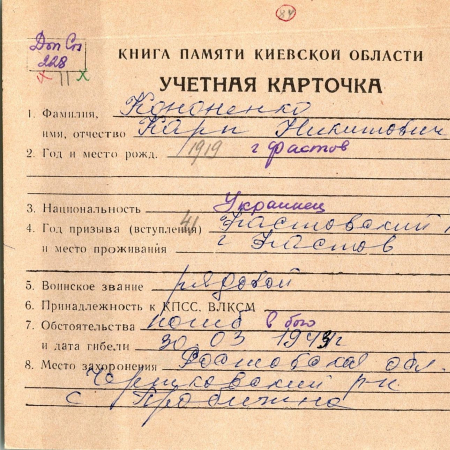 84
Доп Сп
228
КНИГА ПАМЯТИ КИЕВСКОЙ ОБЛАСТИ
УЧЕТНАЯ КАРТОЧКА
1. Фамилия, Кононенко
имя, отчество Карп Никитович
2. Год и место рожд. 1919 г Фастов
3. Национальность Украинец
4. Год призыва (вступления) 41 Фастовский
и место проживания г Фастов
5. Воинское звание рядовой
6. Принадлежность к КПСС, ВЛКСМ
7. Обстоятельства погиб в бою
и дата гибели 30 03 1943г
8. Место захоронения Ростовская обл.
рн
с